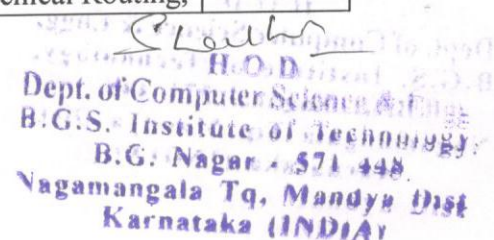 emical Routing,
H.O.D
Dept. of Computer Science &
B.G.S. Institute of Technology
B.G. Nagar - 571 448
Nagamangala Tq, Mandya Dist
Karnataka (INDIA)